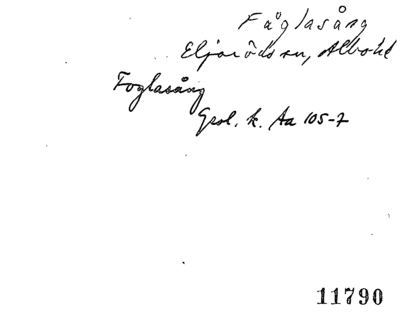 Fåglasång
Eljaröds sn, Albo hd
Foglasång
Geol. k. Aa 105-7
11790